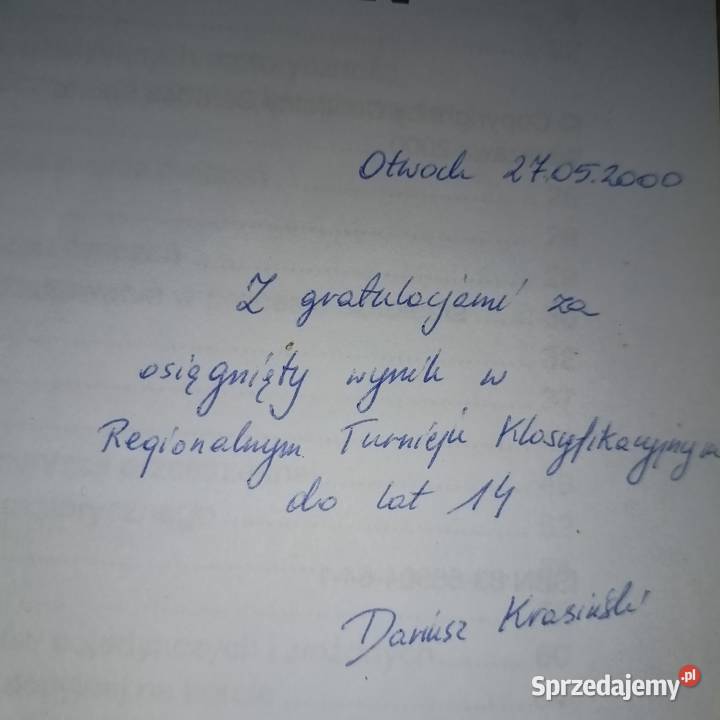 Otwock 27.05.2000
Z gratulacjami za
osiągnięty wynik w
Regionalnym Turnieju Klasyfikacyjnym
do lat 14
Dariusz Krasiński
Sprzedajemy.pl